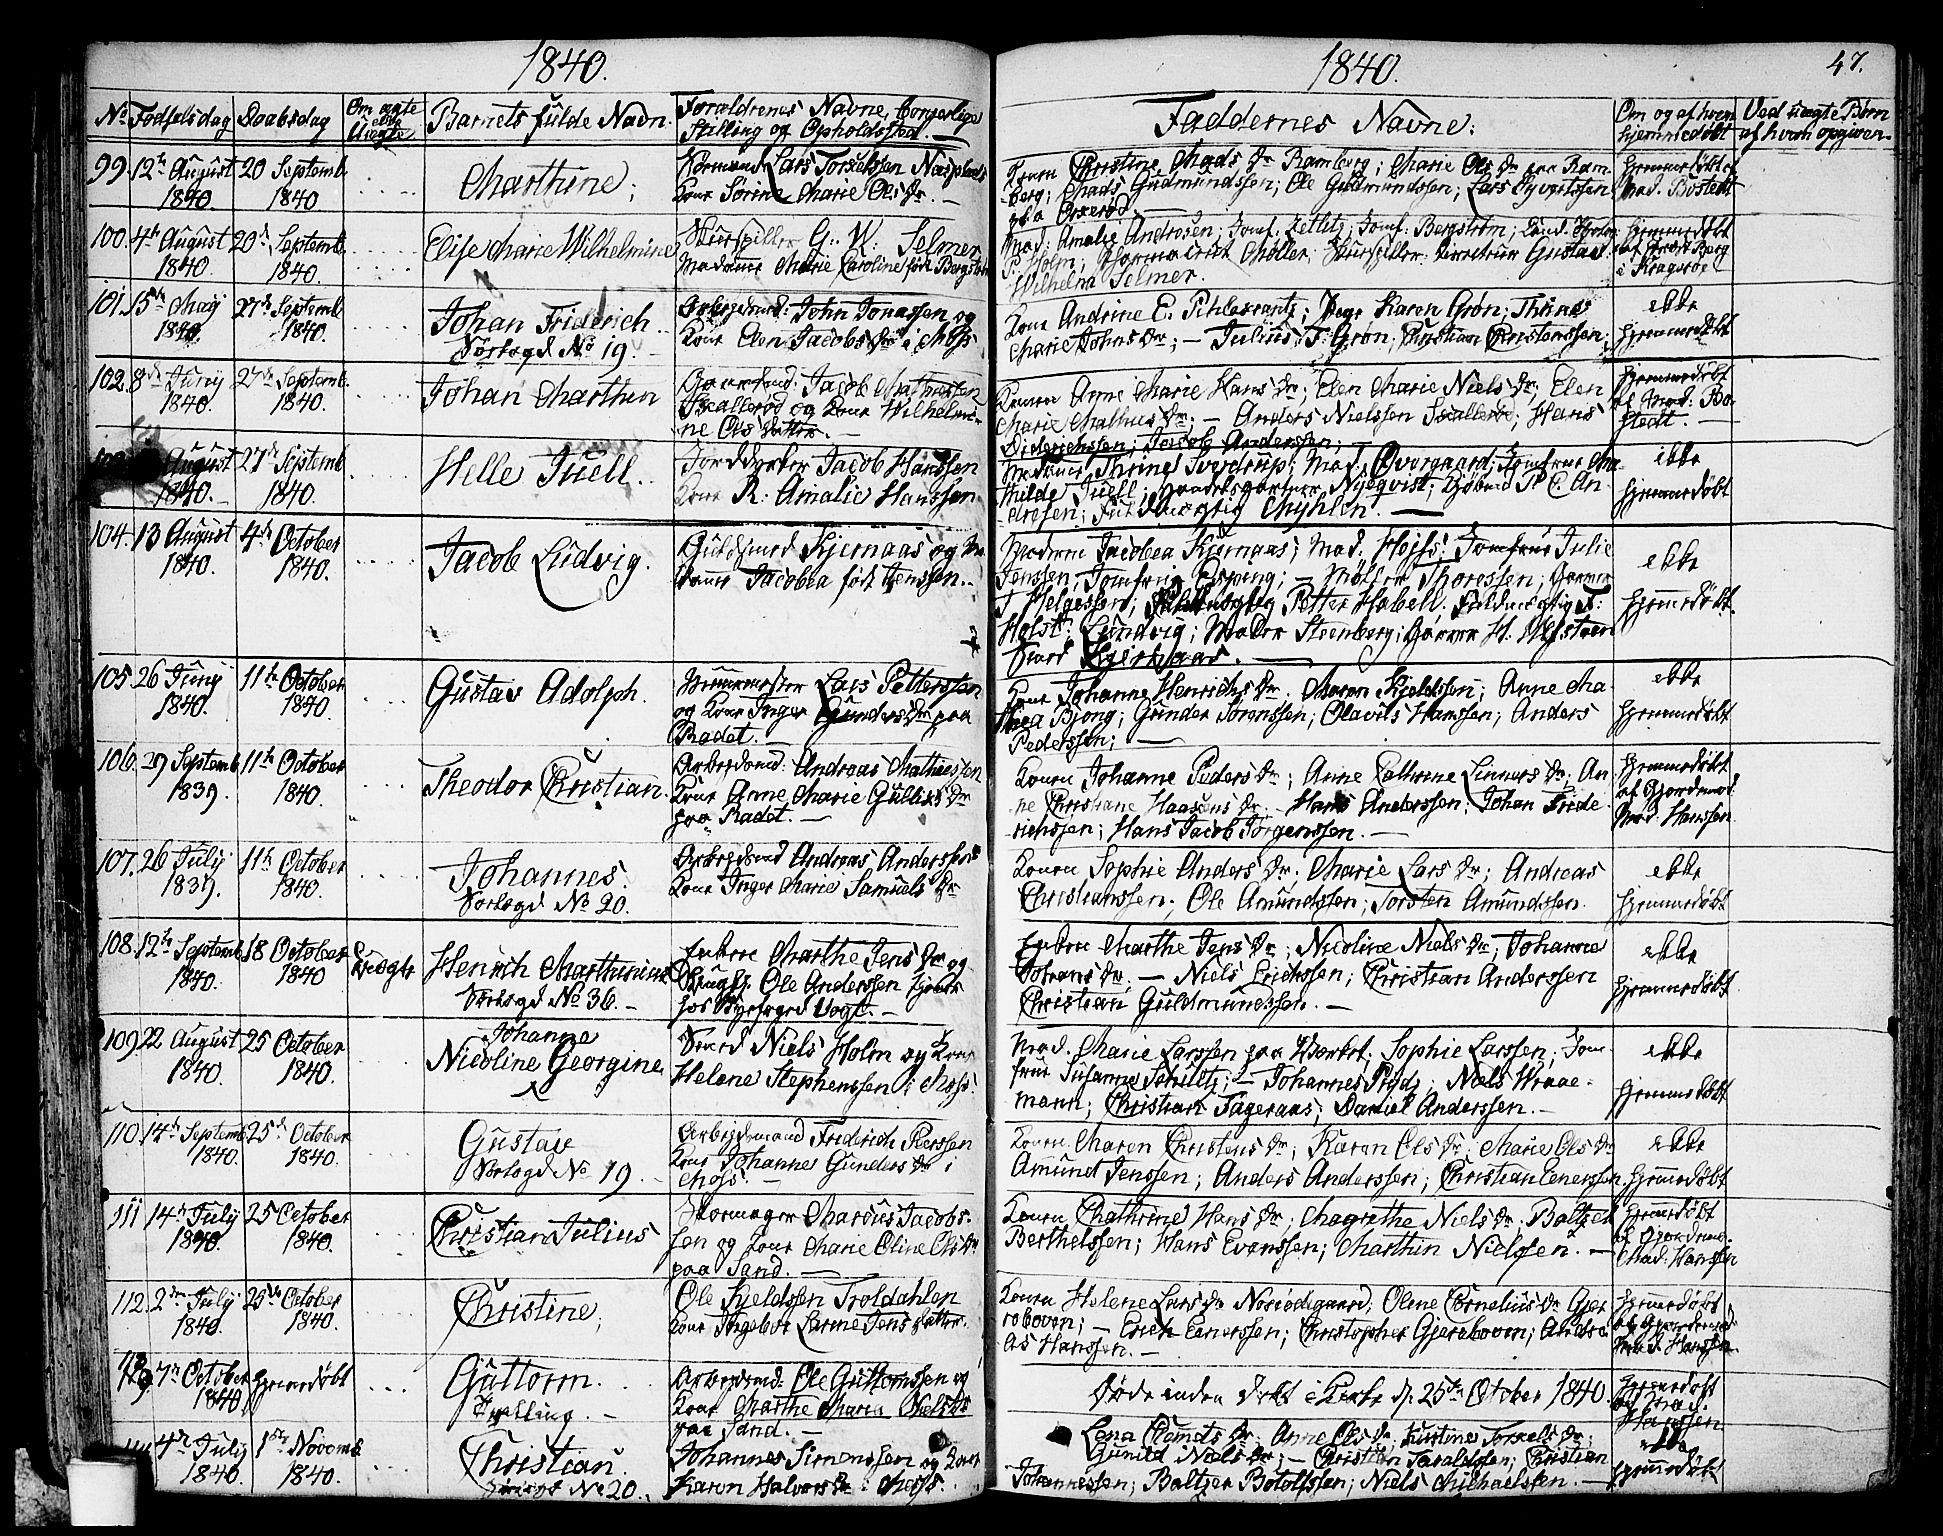 1840.
No Fødselsdag Daabsdag Om ægte eller Uægte Barnets fulde Navn. Forældrenes Navne, borgerlige Stilling og Opholdssted.
99. 12te August 1840 20 Septemb. 1840 Marthine;
Lars Torkelssen
Kone Sørine Marie Ols Dr. —
100. 4de August 1840. 20de Septemb. 1840. Elise Marie Wilhelmine
Skuespiller G: W: Selmer
Madame Marie Caroline født Bergstrøm
101. 15de May 1840. 27de Septemb. 1840. Johan Friderich.
No 19. —
Arbejdsmd: John Jonassen og
Kone Elen Jacobs Dr i Moss
102. 8de Juny 1840. 27de Septemb. 1840. Johan Marthin
Jacob Mathiessen
og Kone Wilhelmi-
ne Ols Datter. —
August 1840. 27de Septemb. 1840. Helle Juell.
Jacob Hanssen
Kone R: Amalie Hanssen
104. 13 August 1840. 4de October 1840. Jacob Ludvig.
Guldsmed Kjernaas og Ma-
dame Jacobea født Jenssen. —
105. 26 Juny 1840. 11te October 1840. Gustav Adolph.
Lars Petterssen
og Kone Inger Gunders Dr paa
Radet. —
106. 29 Septemb. 1839. 11te October 1840. Theodor Christian.
Arbejdsmd: Andreas Mathiessen
Kone Anne Marie Gulliks Dr
paa Radet. —
107. 26 July 1839. 11te October 1840. Johannes.
No 20.
Arbejdsmd Andreas Anderssen
Kone Inger Marie Samuels Dr
108. 12te Septemb. 1840. 18 October 1840 Uægte Henrich Marthinius
No 36. —
Marthe Jens Dr og
Ole Anderssen
hos Byefoged Vogt. —
109. 22 August 1840. 25 October 1840. Johanne
Nicoline Georgine
Smed Niels Holm og Kone
Helene Stephenssen i Moss.
110. 14de Septemb. 1840. 25de October 1840. Gustav
No 19. —
Arbejdsmand Friderich Pierssen
Kone Johanne Gunders Dr i
Moss. —
111 14de July 1840. 25 October 1840. Christian Julius
Skomager Marcus Jacobs-
sen og Kone Marie Oline Ols Dr
paa Sand. —
112. 2den July 1840. 25de October 1840. Christine;
Ole Kjeldssen Troldahlen
Kone Ingebor Larine Jens Datter.
113 7de October 1840 Hjemmedøbt Guttorm.
Tvilling. —
Arbejdsmd: Ole Guttormssen og
Kone Marthe Maria Niels Dr
paa Sand. —
4de July 1840. 1ste Novemb. 1840. Christian
No 20.
Johannes Simenssen og Kone
Karen Halvors Dr i Moss.
1840. 47.
Faddernes Navne: Om og af hvem hjemmedøbt Ved uægte Børn af hvem opgiven.
Konen Christine Mads Dr Ramberg; Marie Ols Dr paa Ram-
berg; Mads Gudmundssen; Ole Gudmundssen; Lars Syvertssen
Hjemmedøbt af
Mad. Bostedt
Mad: Amalie Androsen; Jomf. Zetlitz; Jomf. Bergstrøm;
P. Holm; Møller; Skuespiller Directeur Gustav
Wilhelm Selmer.
Hjemmedøbt
i Kragerøe
Kone Andrine E. Pihlekrantz; Karen Grøn; Thrine
Marie Johns Dr; — Julius F: Grøn; Christian Christenssen;
ikke
hjemmedøbt
Konen Anne Marie Hans Dr; Elen Marie Niels Dr; Elen
Marie Mathias Dr; — Anders Nielssen; Hans
Diderichssen; Jacob Anderssen;
Hjemmedøbt
af Mad: Bo-
stedt. —
Madame Thrine Sverdrup; Mad. Overgaard; Jomfrue Ma-
thilde Juell; Nyeqvist; P. C. An-
dresen; Fuldmægtig Myhlen. —
ikke
hjemmedøbt
Madam Jacobea Kjernaas; Mad. Højss; Jomfrue Julie
Jenssen; Jomfrue Esping; — Møller Thoressen;
J Helgessen; Fuldmægtig Petter Habell. Fuldmægtig F:
Holst; Lundvig; Maler Steenberg;
Smed Kjernaas. —
ikke
hjemmedøbt.
Kone Johanne Henrichs Dr. Maren Kjeldssen; Anne Ma-
thea Bjong; Gunder Sørenssen; Olavus Hanssen; Anders
Pederssen; —
ikke
hjemmedøbt
Konen Johanne Peders Dr; Anne Cathrine Dr; An-
ne Christiane Dr. — Hans Anderssen; Johan Fride-
richssen; Hans Jacob Jørgenssen. —
Hjemmedøbt
af Gjordemod.
Mad. Hanssen
Konen Sophie Anders Dr. Marie Lars Dr; Andreas
Christianssen; Ole Amundssen; Torsten Amundssen.
ikke
hjemmedøbt
Marthe Jens Dr; Nicoline Niels Dr; Johanne
Johans Dr. — Niels Erichssen; Christian Anderssen
Christian Guldmundssen. —
ikke
hjemmedøbt
Mad. Marie Larssen paa Værket; Sophie Larssen; Jom-
frue Susanne Schultz; — Johannes Prydz; Niels Wraae-
mann; Christian Fageraas; Daniel Anderssen. —
ikke
hjemmedøbt
Konen Maren Christens Dr; Karen Ols Dr; Marie Ols Dr
Amund Jenssen; Anders Anderssen; Christian Enerssen
ikke
hjemmedøbt
Konen Chathrine Hans Dr; Magrethe Niels Dr. Baltzer
Berthelssen; Hans Evenssen; Marthin Nielssen. —
Hjemmedøbt
af Gjordemo-
Mad: Hanssen
Konen Helene Lars Dr; Olene Cornelius Dr Gjer-
roboven; — Erich Enerssen; Christopher Gjereboven; Andre-
as Hanssen. —
Hjemmedøbt
af Gjordemod
Mad. Hanssen
Døde inden Døbt i Kirke d. 25de October 1840.
Hjemmedøbt
af Mad.
Hanssen
Lena Dr; Anne Ols Dr; Justine Torkels Dr;
Gunild Niels Dr; — Christen Taraldssen; Christian
Johannessen; Baltzer Botolfssen; Niels Michaelssen. —
ikke
hjemmedøbt